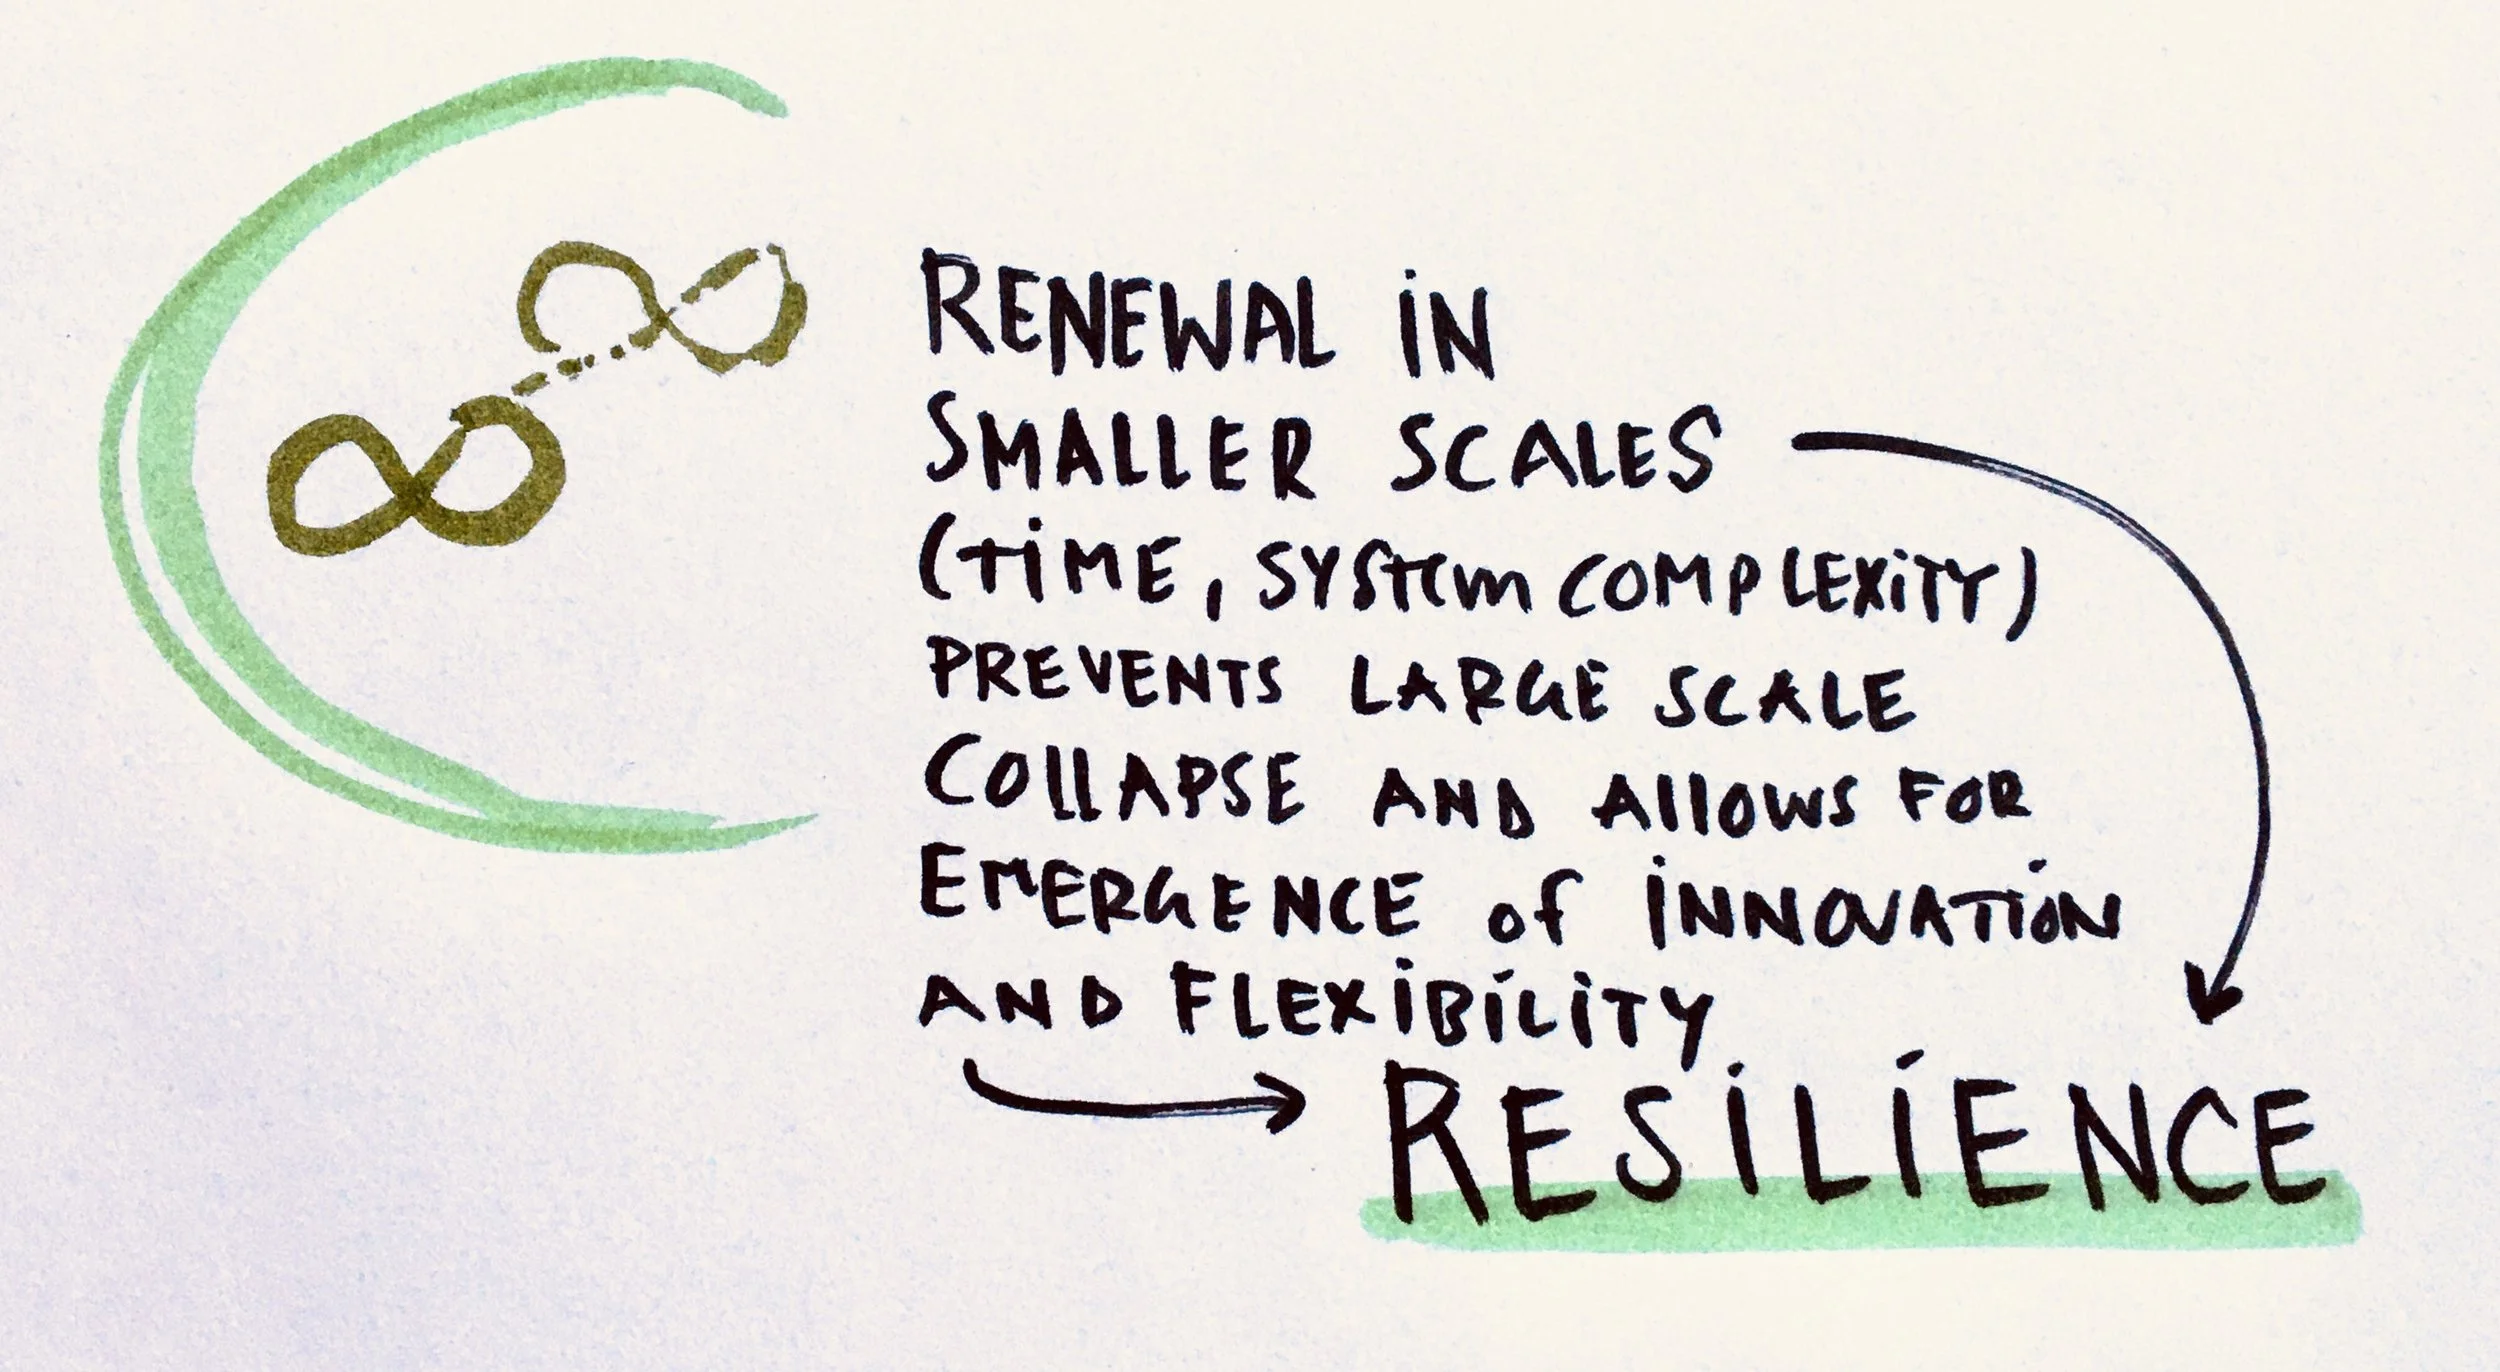 RENEWAL IN
SMALLER SCALES
(TIME, SYSTEM COMPLEXITY)
PREVENTS LARGE SCALE
COLLAPSE AND ALLOWS FOR
EMERGENCE OF INNOVATION
AND FLEXIBILITY
RESILIENCE